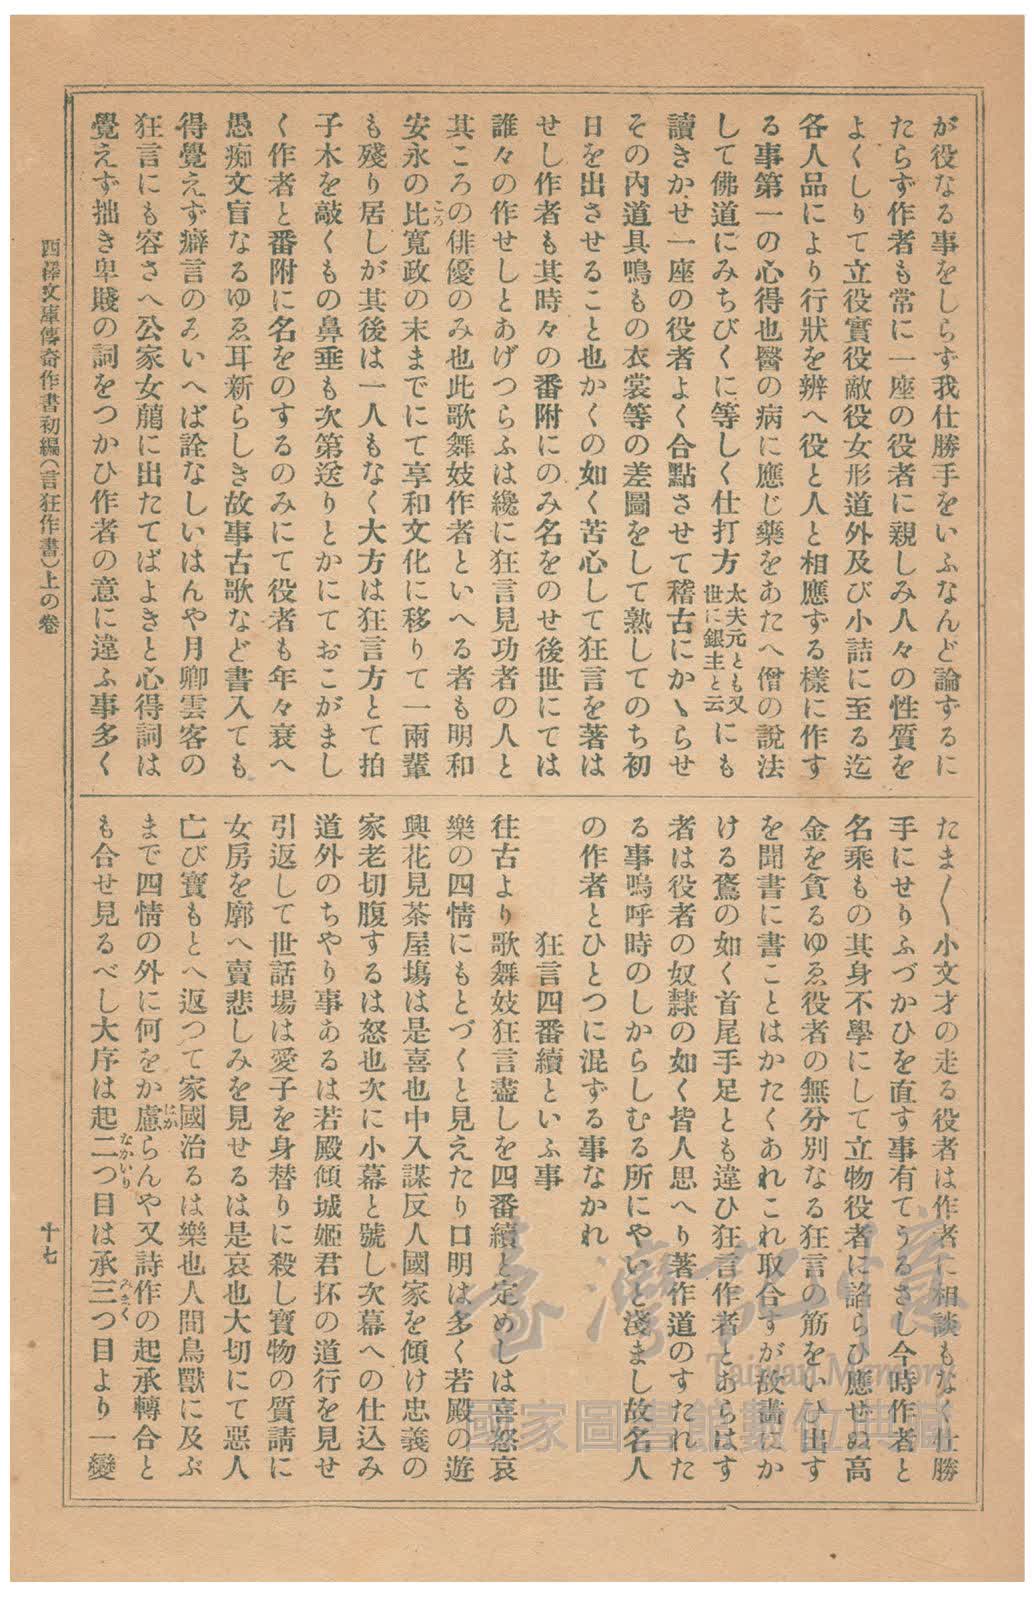 が役なる事をしらず我仕勝手をいふなんど論ずるに
たらず作者も常に一座の役者に親しみ人々の性質を
よくしりて立役實役敵役女形道外及び小詰に至る迄
各人品により行狀を辨へ役と人と相應ずる樣に作す
る事第一の心得也醫の病に應じ藥をあたへ僧の說法
して佛道にみちびくに等しく仕打方太夫元とも又世に銀主と云にも
讀きかせ一座の役者よく合點させて稽古にかゝらせ
その内道具鳴もの衣裳等の差圖をして熟してのち初
日を出させること也かくの如く苦心して狂言を著は
せし作者も其時々の番附にのみ名をのせ後世にては
誰々の作せしとあげつらふは纔に狂言見功者の人と
其ころの俳優のみ也此歌舞妓作者といへる者も明和
安永の比寬政の末までにて享和文化に移りて一兩輩
ころ
も殘り居しが其後は一人もなく大方は狂言方とて拍
子木を敲くもの鼻垂も次第送りとかにておこがまし
く作者と番附に名をのするのみにて役者も年々衰へ
愚痴文盲なるゆゑ耳新らしき故事古歌など書入ても
得覺えず癖言のみいへば詮なしいはんや月卿雲客の
狂言にも容さへ公家女﨟に出たてばよきと心得詞は
覺えず拙き卑賤の詞をつかひ作者の意に違ふ事多く
たま〱小文才の走る役者は作者に相談もなく仕勝
手にせりふづかひを直す事有てうるさし今時作者と
名乘もの其身不學にして立物役者に諂らひ應せぬ高
金を貪るゆゑ役者の無分別なる狂言の筋をいひ出す
を聞書に書ことはかたくあれこれ取合すが故畵にか
ける鵞の如く首尾手足とも違ひ狂言作者とあらはす
者は役者の奴隸の如く皆人思へり著作道のすたれた
る事嗚呼時のしからしむる所にやいと淺まし故名人
の作者とひとつに混ずる事なかれ
狂言四番續といふ事
往古より歌舞妓狂言盡しを四番續と定めしは喜怒哀
樂の四情にもとづくと見えたり口明は多く若殿の遊
興花見茶屋塲は是喜也中入謀反人國家を傾け忠義の
家老切腹するは怒也次に小幕と號し次幕への仕込み
道外のちやり事あるは若殿傾城姬君抔の道行を見せ
引返して世話場は愛子を身替りに殺し寶物の質請に
女房を廓へ賣悲しみを見せるは是哀也大切にて惡人
亡び寶もとへ返つて家國治るは樂也人間鳥獸に及ぶ
まで四情の外に何をか慮らんや又詩作の起承轉合と
はか
も合せ見るべし大序は起二つ目は承三つ目より一變
なかいり
みまく
西澤文庫傳奇作書初編(言狂作書)上の卷
十七
臺灣記憶
Taiwan Memory
國家圖書館數位典藏